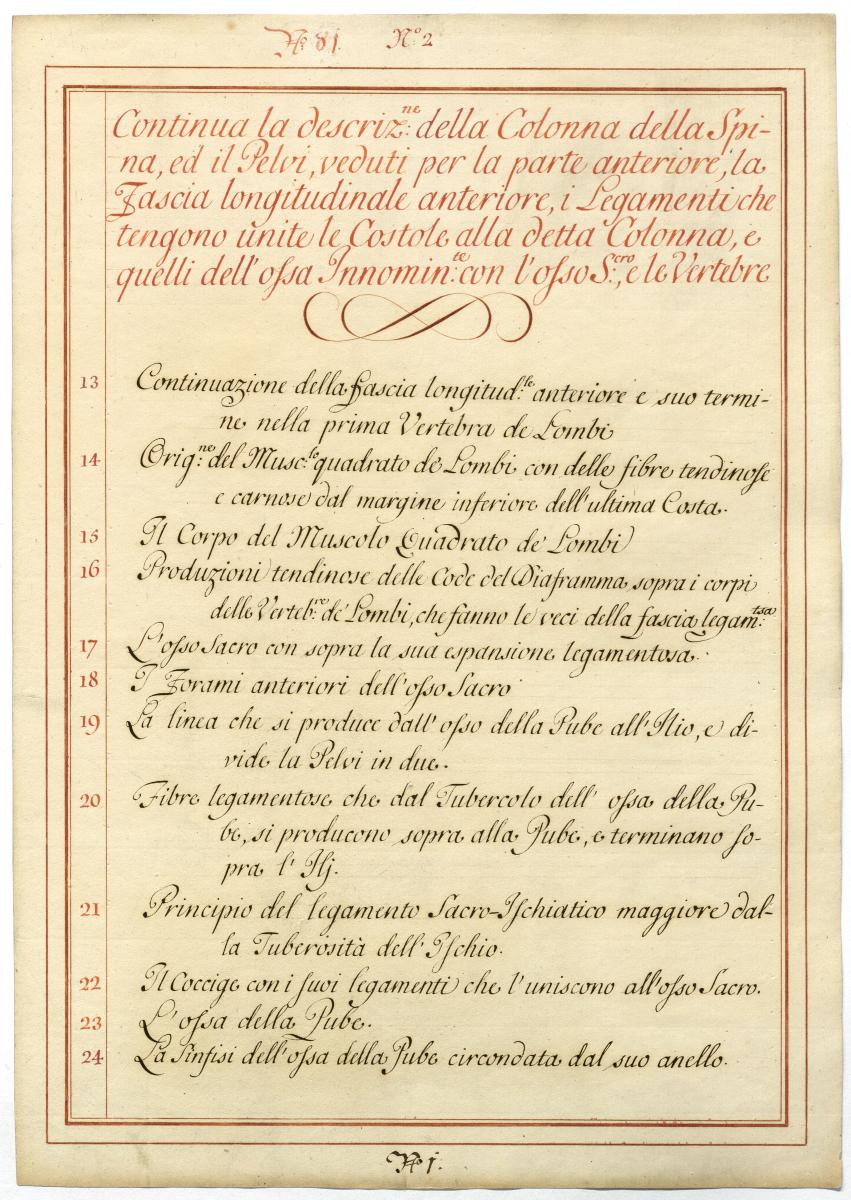 Nº 81. Nº 2
Continua la descriz:ne della Colonna della Spi-
na, ed il Pelvi, veduti per la parte anteriore, la
Fascia longitudinale anteriore, i Legamenti che
tengono unite le Costole alla detta Colonna, e
quelli dell'ossa Innomin:te con l'osso S:cro, e le Vertebre
13 Continuazione della fascia longitud:le anteriore e suo termi-
ne nella prima Vertebra de Lombi
14 Orig:ne del Musc:lo quadrato de Lombi con delle fibre tendinose
e carnose dal margine inferiore dell'ultima Costa.
15 Il Corpo del Muscolo Quadrato de' Lombi
16 Produzioni tendinose delle Code del Diaframma sopra i corpi
delle Verteb:re de' Lombi, che fanno le veci della fascia legam:tsa
17 L'osso Sacro con sopra la sua espansione legamentosa.
18 I Forami anteriori dell'osso Sacro
19 La linea che si produce dall'osso della Pube all'Ilio, e di-
vide la Pelvi in due.
20 Fibre legamentose che dal Tubercolo dell' ossa della Pu-
be, si producono sopra alla Pube, e terminano so-
pra l' Ilj.
21 Principio del legamento Sacro-Ischiatico maggiore dal-
la Tuberosità dell'Ischio.
22 Il Coccige con i suoi legamenti che l'uniscono all'osso Sacro.
23 L'ossa della Pube.
24 La Sinfisi dell'ossa della Pube circondata dal suo anello.
Nº 1.